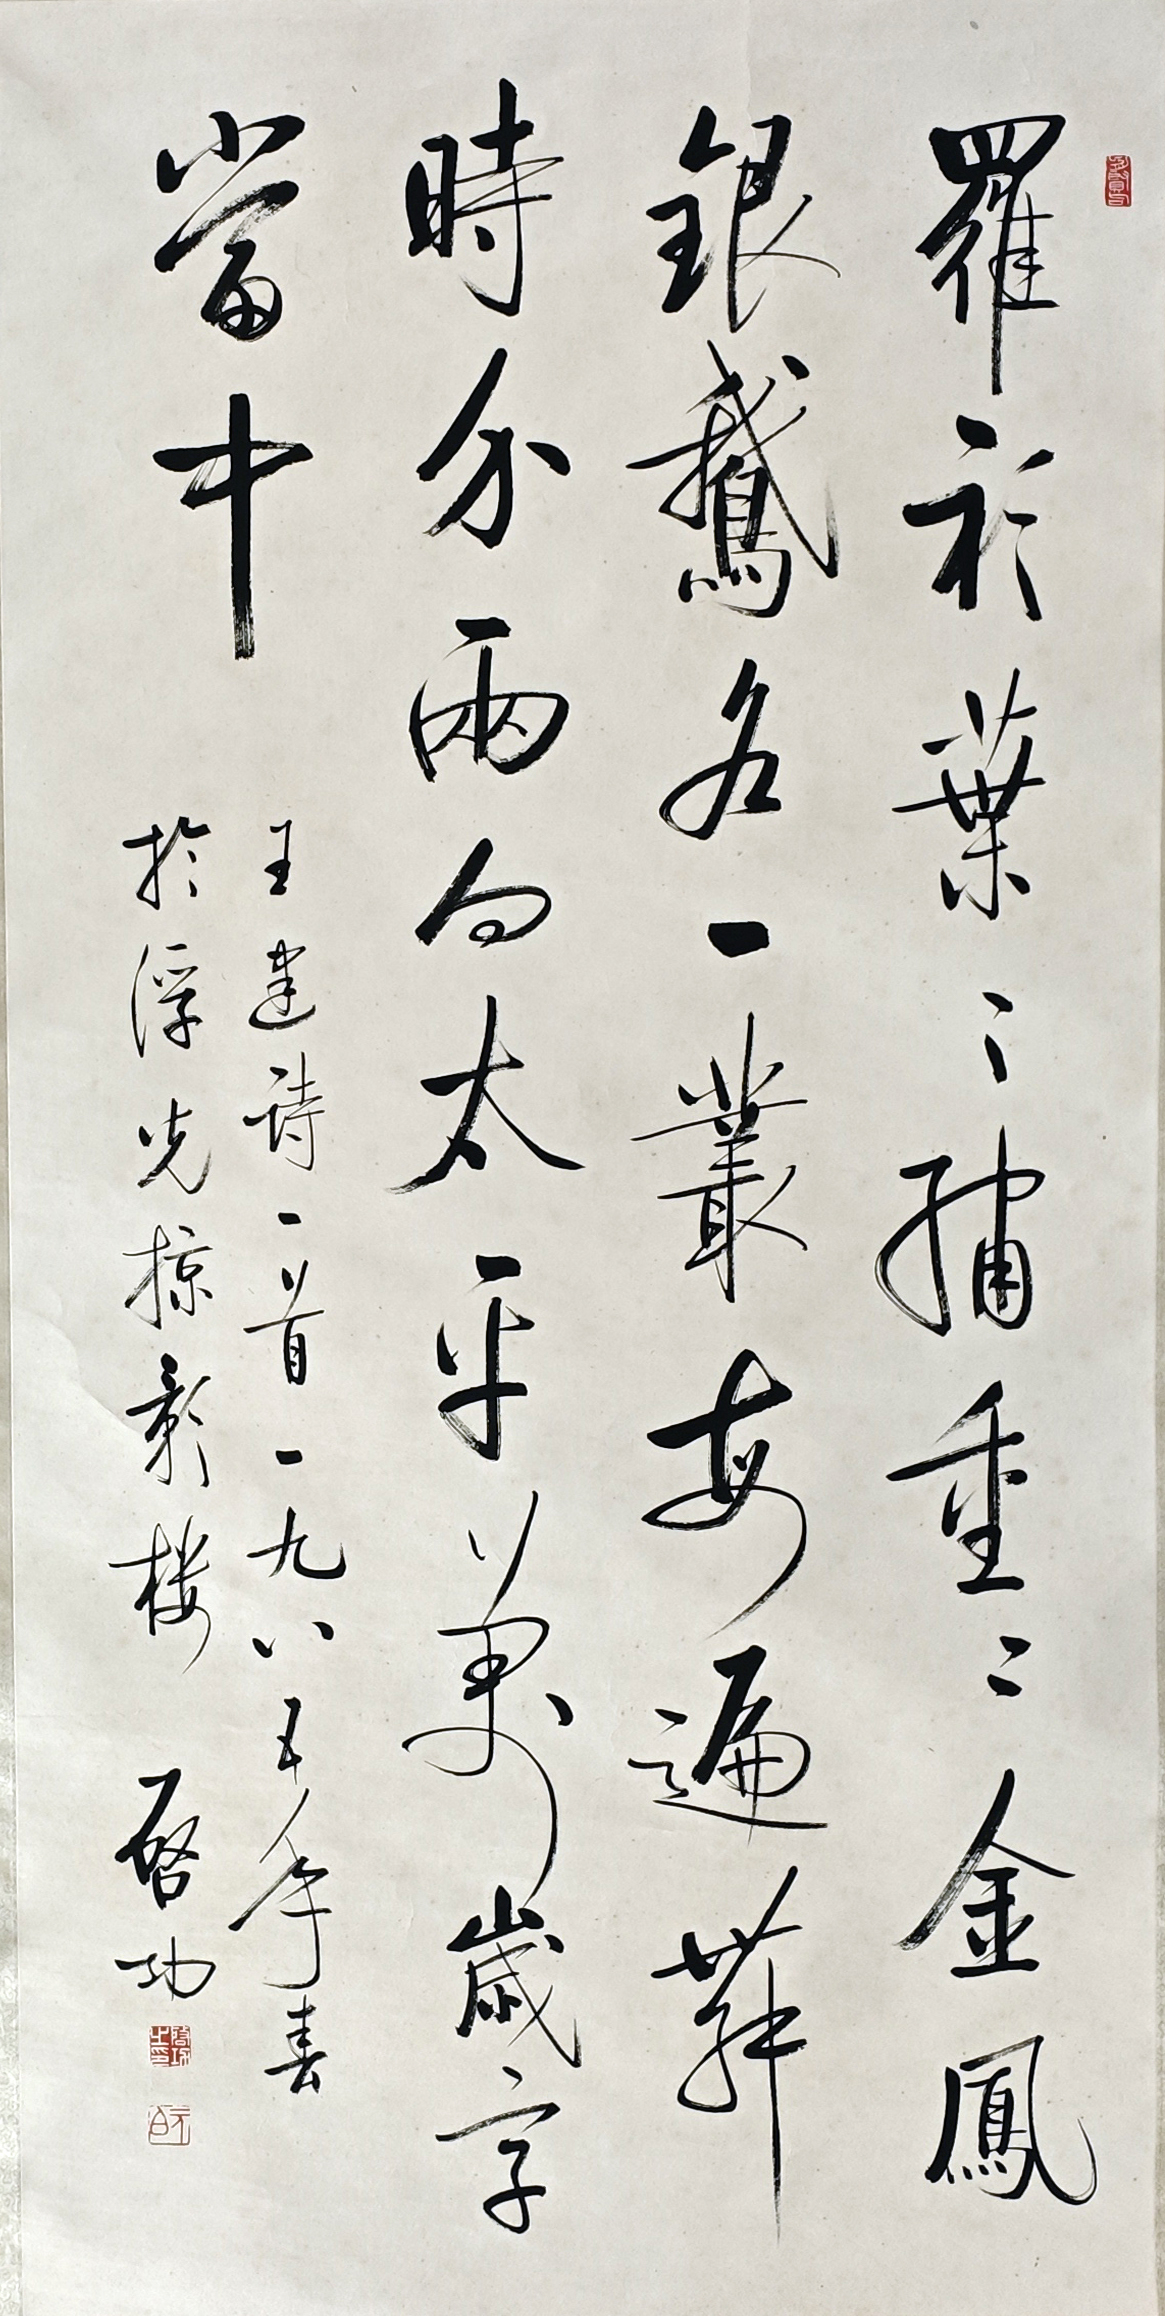 羅衫葉〻繡重〻金鳳
銀鵝各一叢每遍舞
時分兩向太平萬歲字
當中
王建詩一首一九八五年春
於浮光掠影樓
啓功
啓功之印
元白